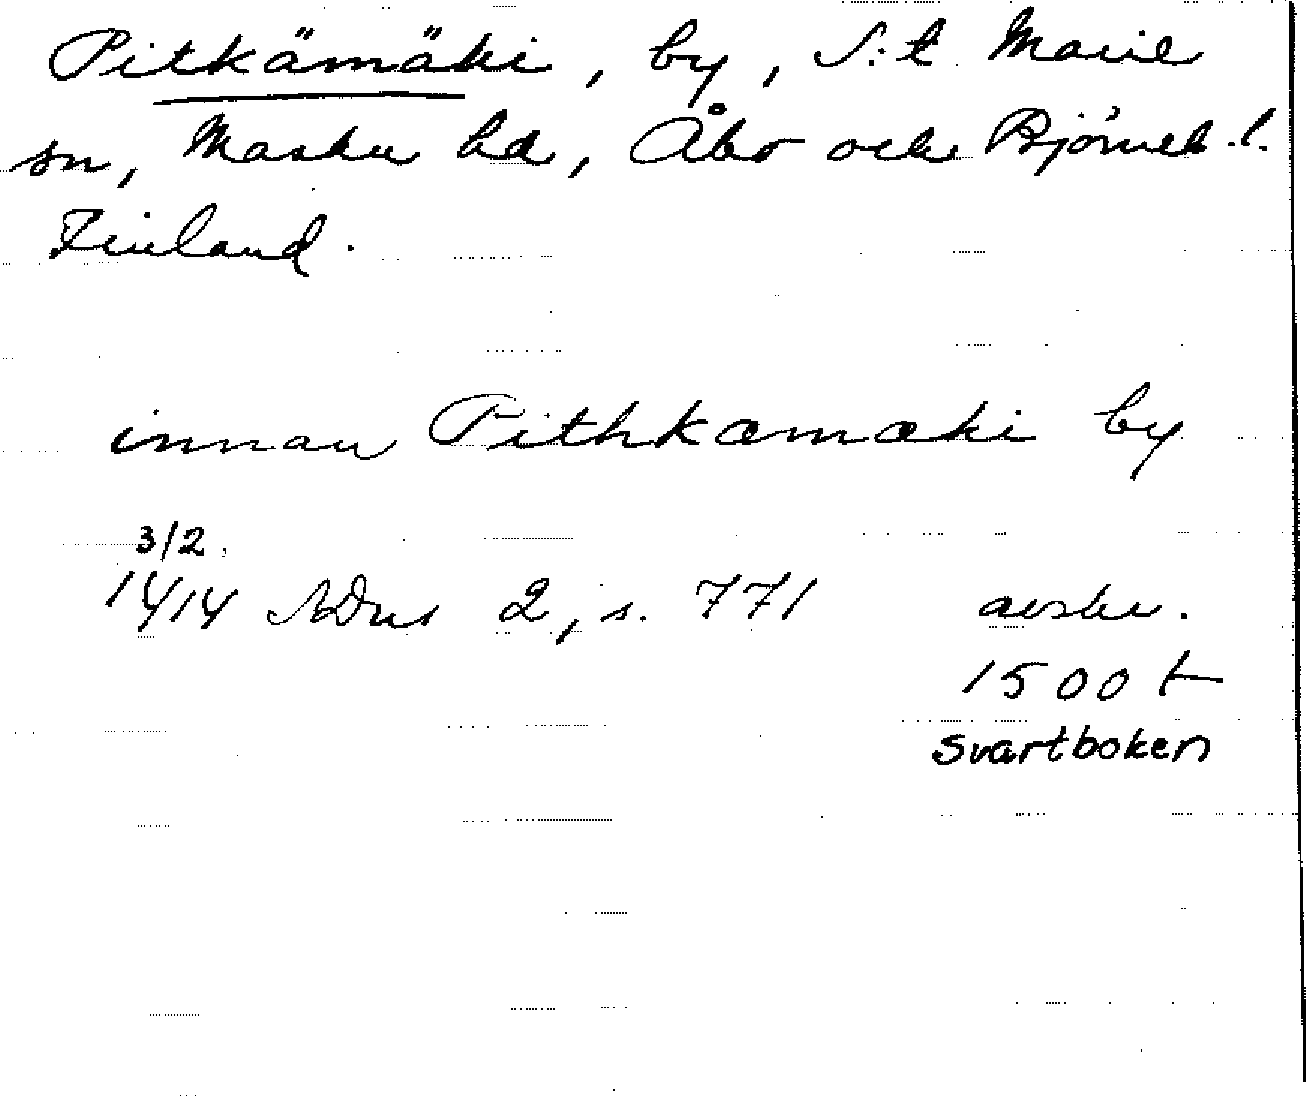 Pitkämäki, by, S:t Marie
sn, Masku hd, Åbo och Björneb. l.
Finland.
innan Pithkæmæki by
3/2.
1414 SDns 2, s. 771 avskr.
1500 t
Svartboken